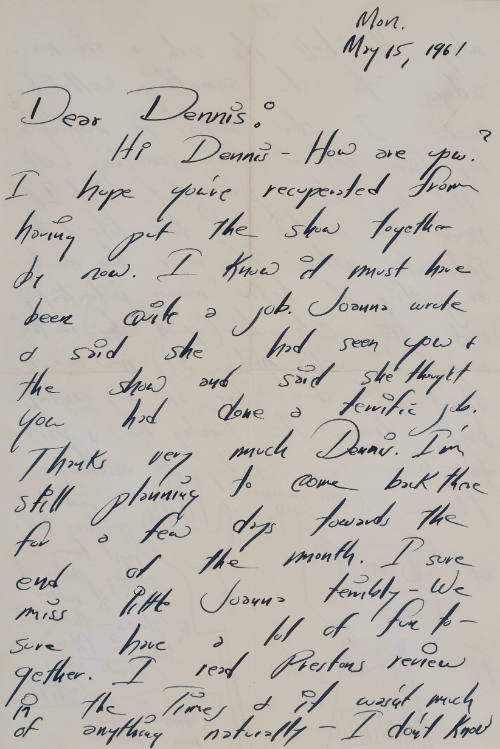 Mon.
May 15, 1961
Dear Dennis:
Hi Dennis - How are you?
I hope you're recuperated from
having put the show together
by now. I know it must have
been quite a job. Joanna wrote
& said she had seen you &
the show and said she thought
you had done a terrific job.
Thanks very much Dennis. I'm
still planning to come back there
for a few days towards the
end of the month. I sure
miss little Joanna terribly - We
sure have a lot of fun to-
gether. I read Prestons review
in the Times & it wasn't much
of anything naturally - I don't know